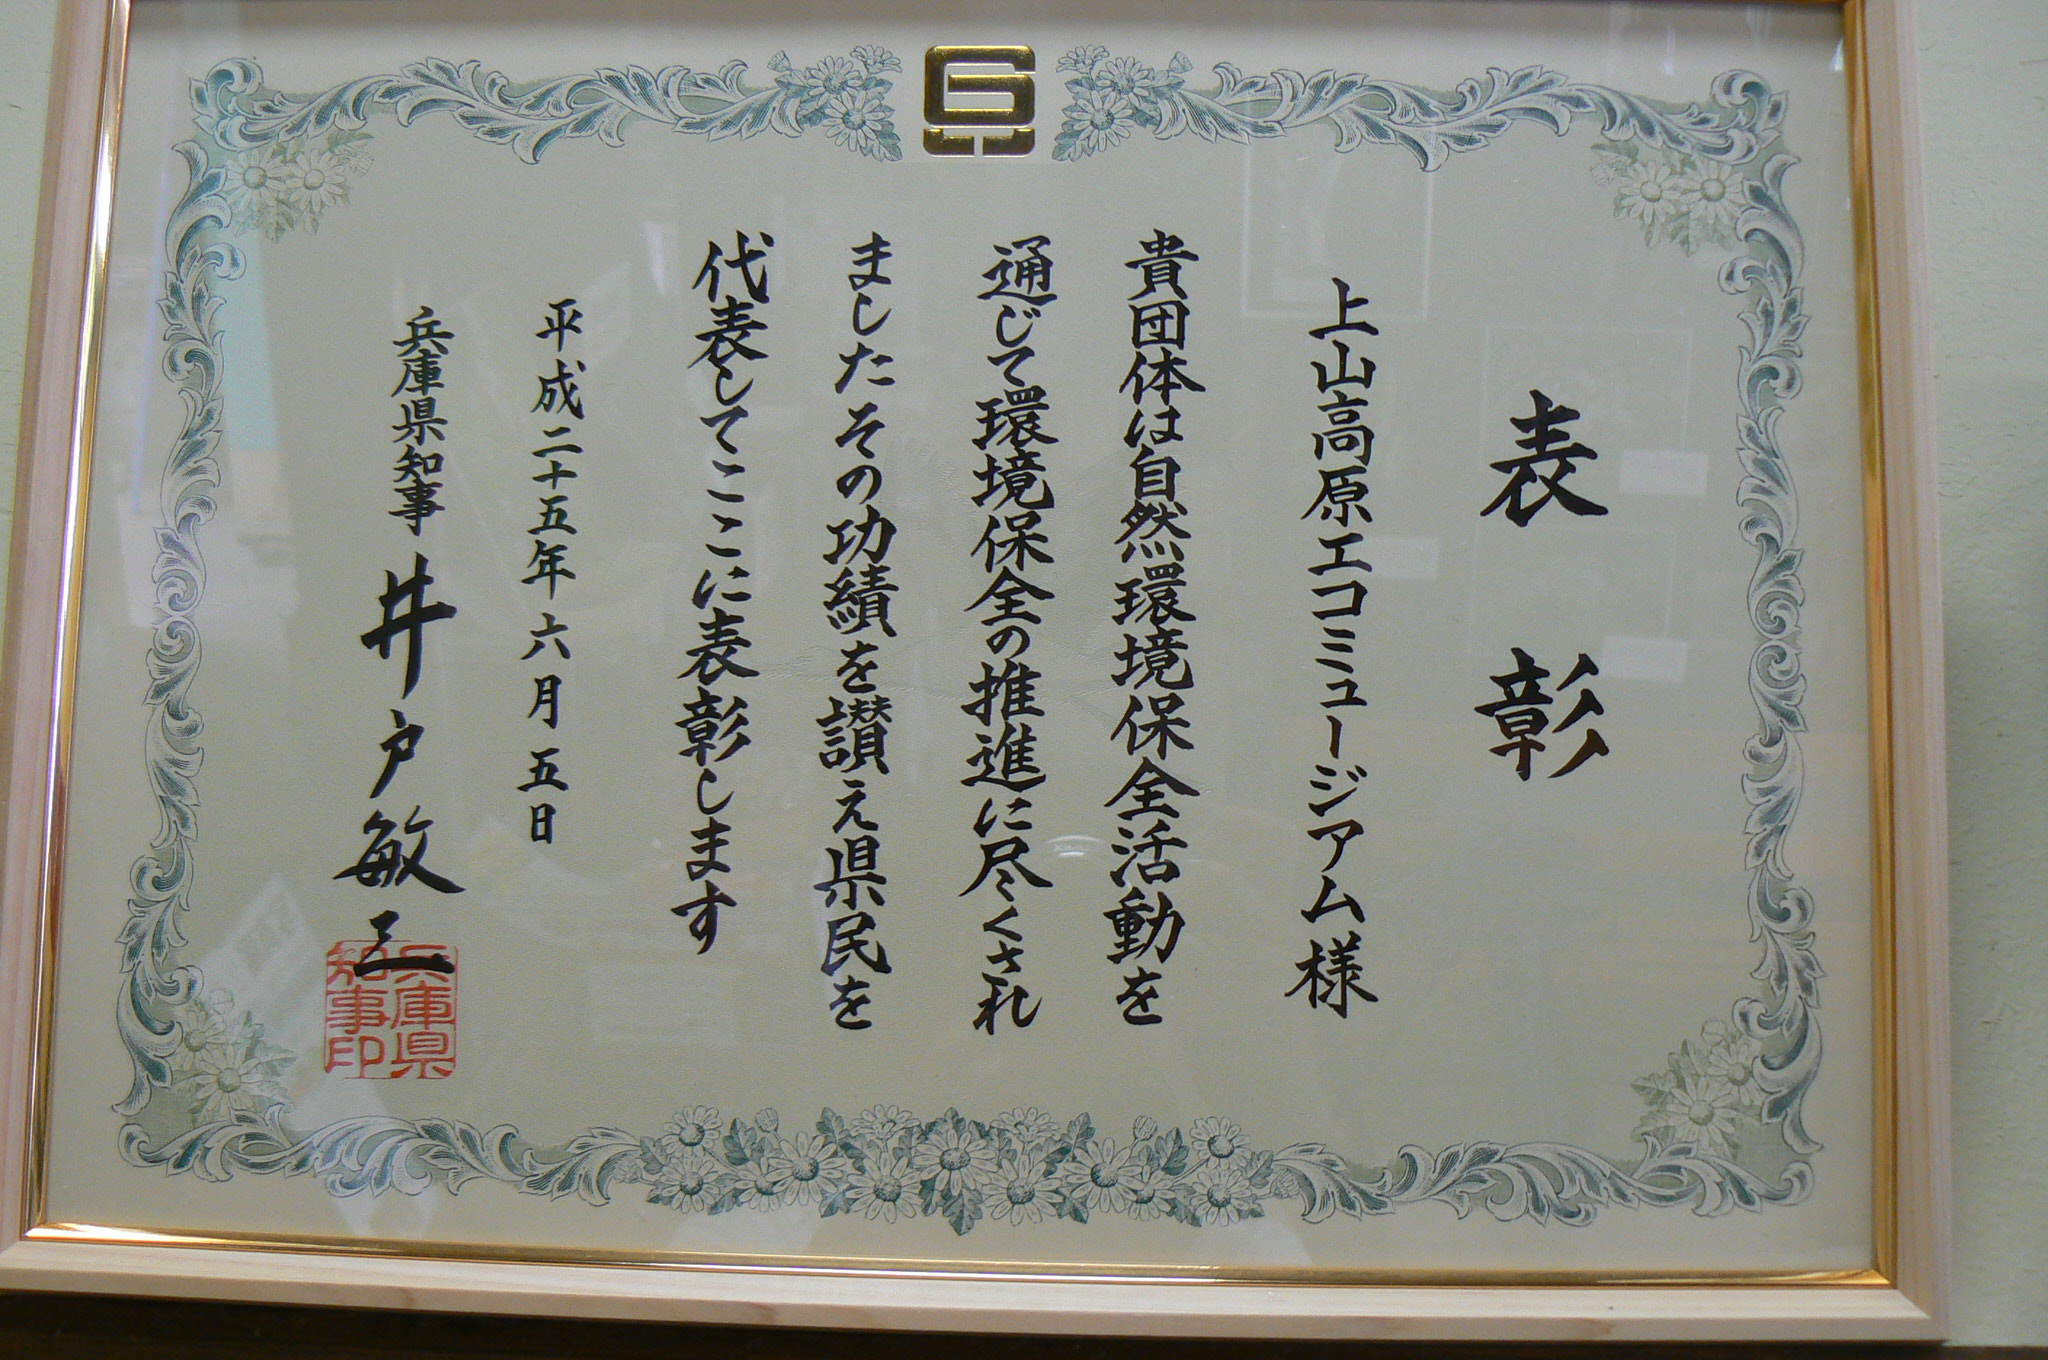 表彰
上山高原エコミュージアム様
貴団体は自然環境保全活動を
通じて環境保全の推進に尽くされ
ましたその功績を讃え県民を
代表してここに表彰します
平成二十五年六月五日
兵庫県知事 井戸敏三
兵庫県
知事印